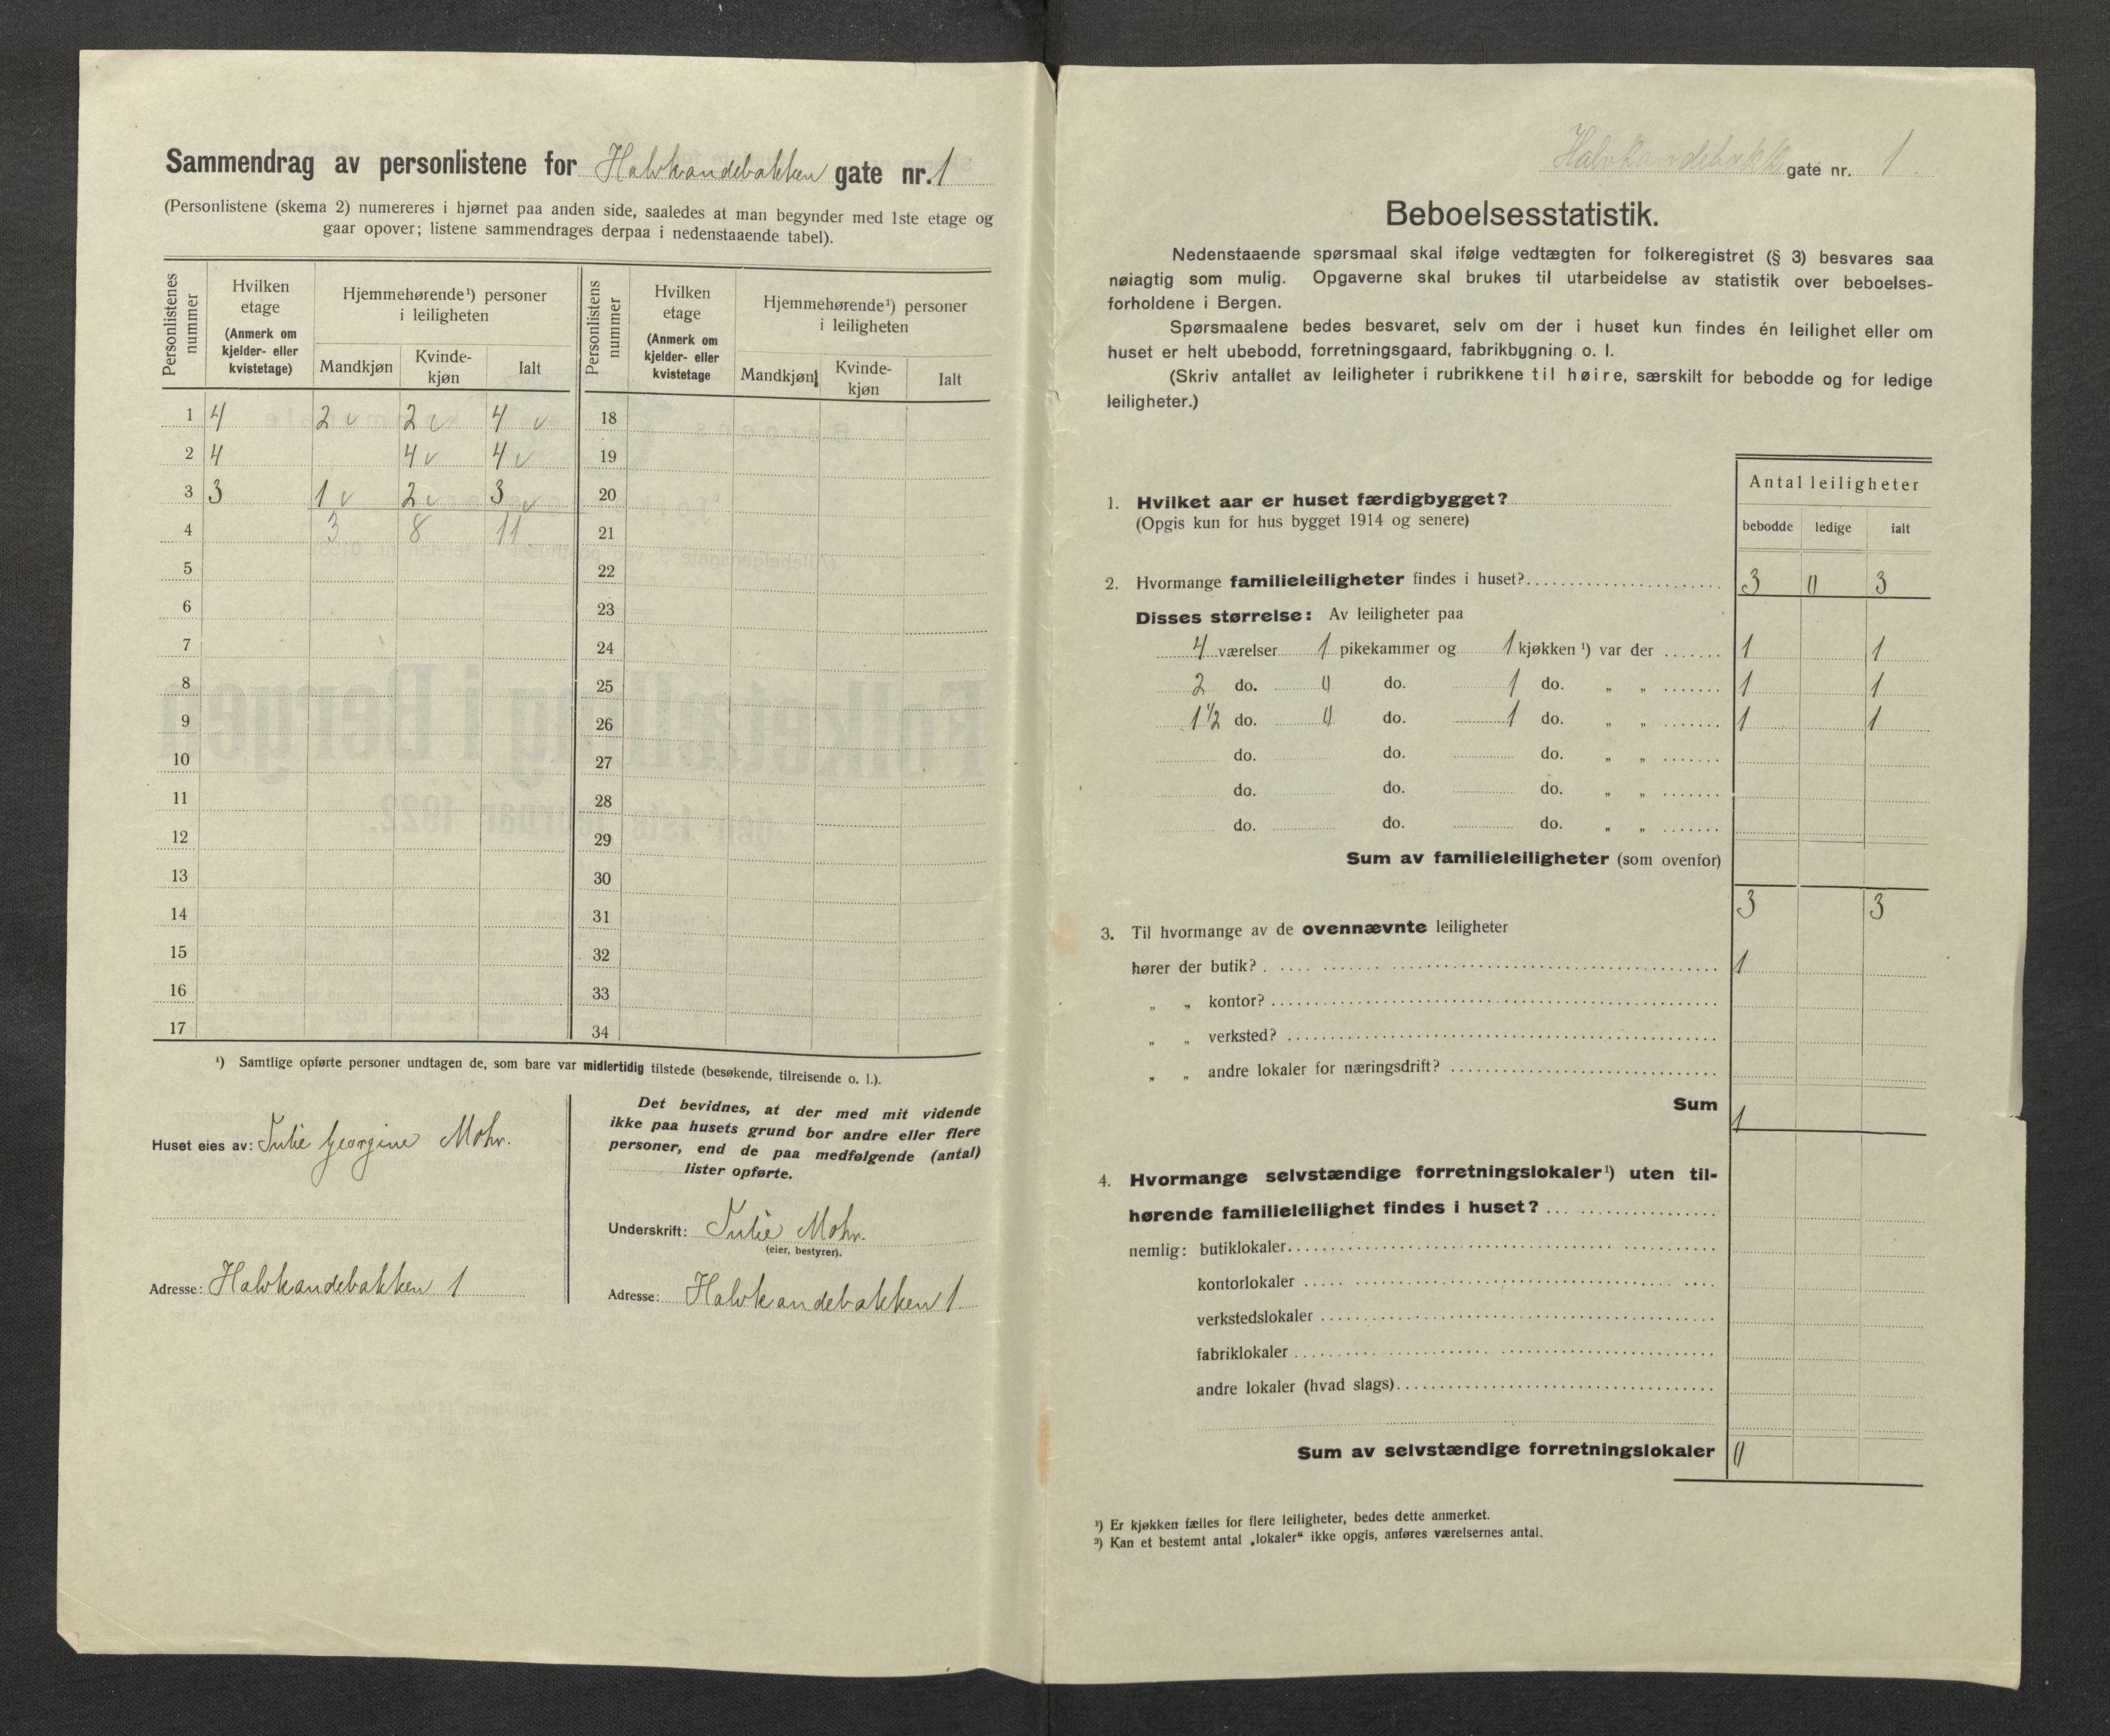 Sammendrag av personlistene for Halvkandebakken gate nr. 1
(Personlistene (skema 2) numereres i hjørnet paa anden side, saaledes at man begynder med 1ste etage og
gaar opover; listene sammendrages derpaa i nedenstaaende tabel).
Personlistenes nummer
Hvilken etage (Anmerk om kjelder- eller kvistetage)
Hjemmehørende¹) personer i leiligheten
Mandkjøn
Kvinde-kjøn
Ialt
Personlistens nummer
Hvilken etage (Anmerk om kjelder- eller kvistetage
Hjemmehørende¹) personer i leiligheten
Mandkjøn
Kvinde-kjøn
Ialt
1 4 2 v 2 v 4 v 18
2 4 4 v 4 v 19
3 3 1 v 2 v 3 v 20
4 3 8 11 21
5 22
6 23
7 24
8 25
9 26
10 27
11 28
12 29
13 30
14 31
15 32
16 33
17 34
¹) Samtlige opførte personer undtagen de, som bare var midlertidig tilstede (besøkende, tilreisende o. l.).
Huset eies av: Julie Georgine Mohr.
Adresse: Halvkandebakken 1
Det bevidnes, at der med mit vidende
ikke paa husets grund bor andre eller flere
personer, end de paa medfølgende (antal)
lister opførte.
Underskrift: Julie Mohr.
(eier, bestyrer).
Adresse: Halvkandebakken 1
Halvkandebakk gate nr. 1
Beboelsesstatistik.
Nedenstaaende spørsmaal skal ifølge vedtægten for folkeregistret (§ 3) besvares saa
nøiagtig som mulig. Opgaverne skal brukes til utarbeidelse av statistik over beboelses-
forholdene i Bergen.
Spørsmaalene bedes besvaret, selv om der i huset kun findes én leilighet eller om
huset er helt ubebodd, forretningsgaard, fabrikbygning o. l.
(Skriv antallet av leiligheter i rubrikkene til høire, særskilt for bebodde og for ledige
leiligheter.)
Antal leiligheter
bebodde ledige ialt
1. Hvilket aar er huset færdigbygget?
(Opgis kun for hus bygget 1914 og senere)
2. Hvormange familieleiligheter findes i huset? 3 0 3
Disses størrelse: Av leiligheter paa
4 værelser 1 pikekammer og 1 kjøkken ¹) var der 1 1
2 do. 0 do. 1 do. „ „ 1 1
1 1/2 do. 0 do. 1 do. „ „ 1 1
do. do. do. „ „
do. do. do. „ „
do. do. do. „ „
Sum av familieleiligheter (som ovenfor)
3 3
3. Til hvormange av de ovennævnte leiligheter
hører der butik? 1
„ „ kontor?
„ „ verksted?
„ „ andre lokaler for næringsdrift?
Sum 1
4. Hvormange selvstændige forretningslokaler¹) uten til-
hørende familieleilighet findes i huset?
nemlig: butiklokaler
kontorlokaler
verkstedslokaler
fabriklokaler
andre lokaler (hvad slags)
Sum av selvstændige forretningslokaler 0
¹) Er kjøkken fælles for flere leiligheter, bedes dette anmerket.
²) Kan et bestemt antal „lokaler“ ikke opgis, anføres værelsernes antal.